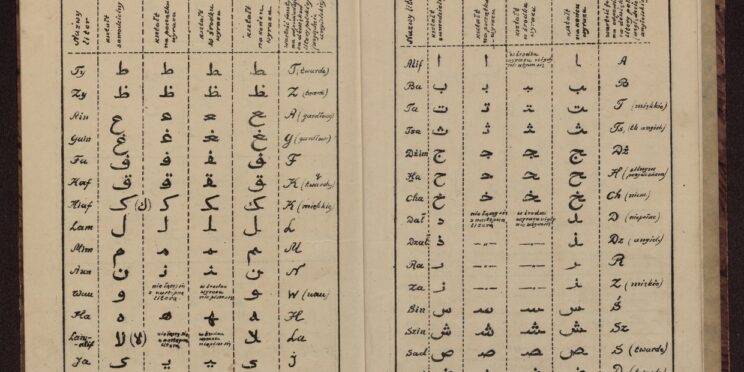 Nazwy liter kształt samodzielny kształt na początku wyrazu kształt w środku wyrazu kształt na końcu wyrazu
Ty ط ط ط ط T (twarde)
Zy ظ ظ ظ ظ Z (tward)
Ain ع ع ع ع A (gardłowe)
Gain غ غ غ غ G (gardłowe)
Fa ف ف ف ف F
Kaf ق ق ق ق K (twarde)
Kiaf ك (ك) ك ك ك K (miękkie)
Lam ل ل ل ل L
Mim م م م م M
Nun ن ن ن ن N
Wau و nie łączy się z następną literą w środku wyrazu و W (uau)
Ha ه ه ه ه H
Lam-alif لا (لا) لا La
Ja ى ي ي ى J
kształt samodzielny kształt na początku wyrazu kształt w środku wyrazu kształt na końcu wyrazu
Alif ا ا w środku wyrazu ا A
Ba ب ب ب ب B
Ta ت ت ت ت T (miękkie)
Tsa ث ث ث ث Ts, (th angiels)
Dżim ج ج ج ج Dż
Ha ح ح ح ح H
Cha خ خ خ خ Ch (niem)
Dal د nie łączy się z następną literą w środku wyrazu د D
Dzal ذ —„— —„— ذ Dz (angiels)
Ra ر —„— —„— ر R
Za ز —„— —„— ز Z (miękkie)
Sin س س س س Ś
Szin ش ش ش ش Sz
Sad ص ص ص ص S (twarde)